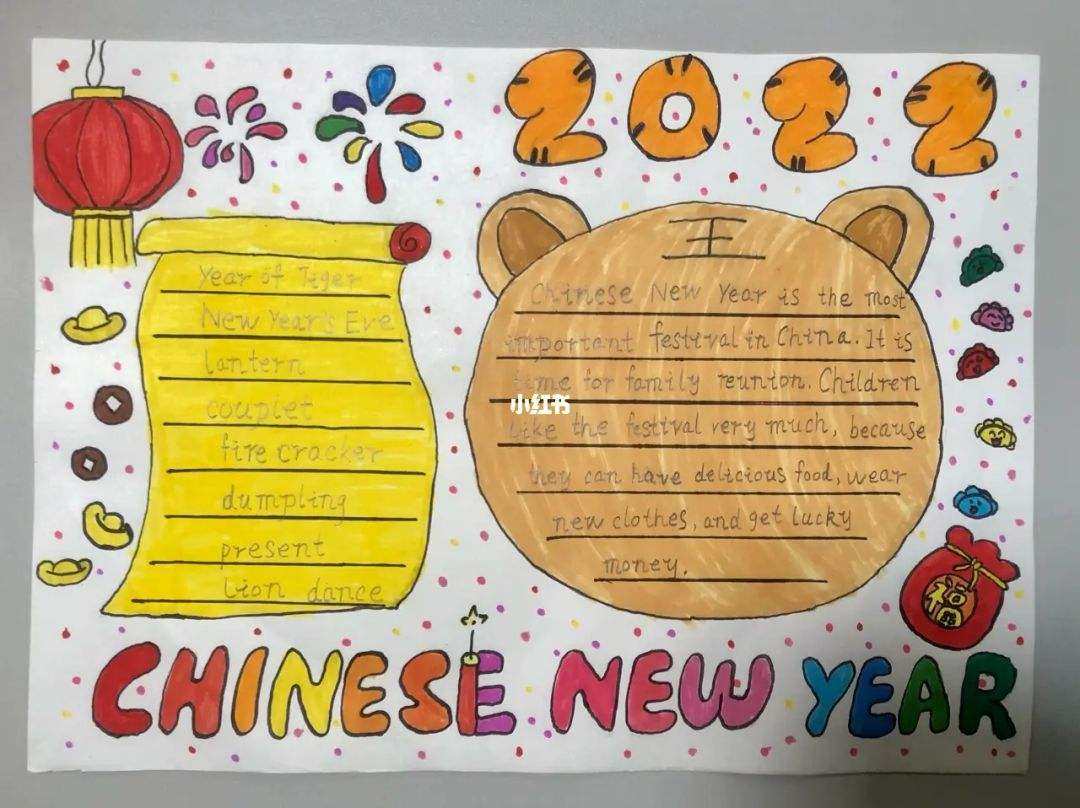 2022
Year of Tiger
New Year's Eve
lantern
couplet
fire cracker
dumpling
present
lion dance
王
Chinese New Year is the most
important festival in China. It is
time for family reunion. Children
like the festival very much, because
they can have delicious food, wear
new clothes, and get lucky
money.
小红书
福
CHINESE NEW YEAR